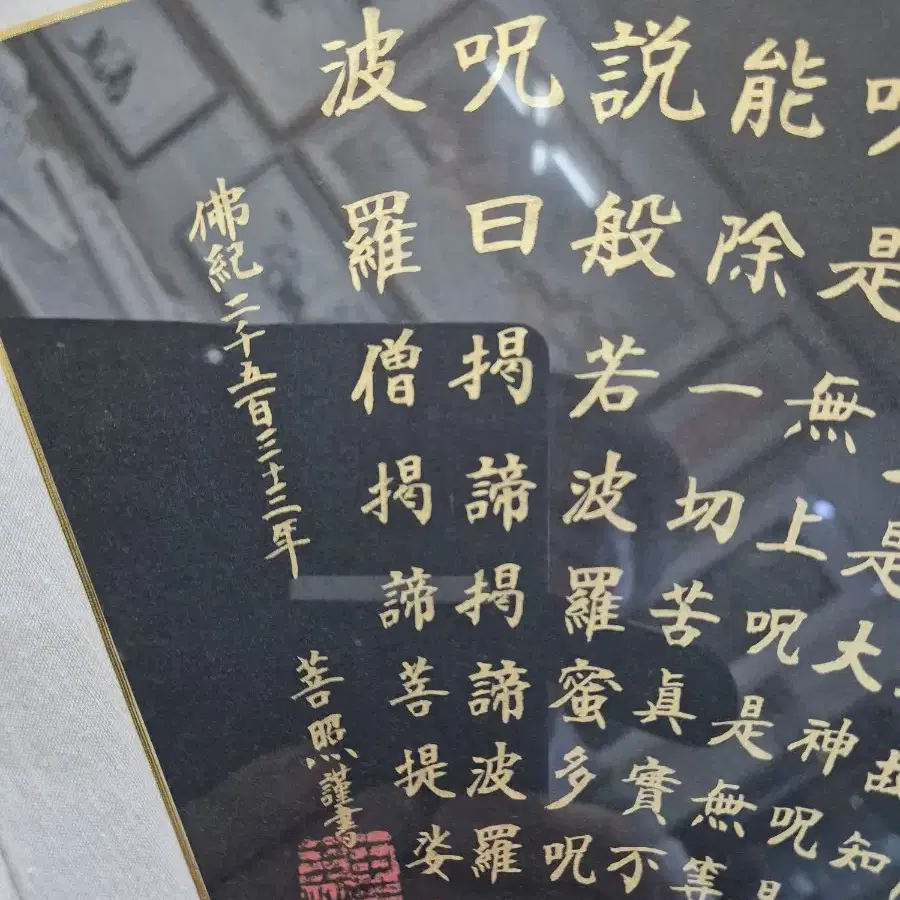 故知
是大神呪
呪是無上呪是無等
能除一切苦眞實不
説般若波羅蜜多呪
呪曰揭諦揭諦波羅
波羅僧揭諦菩提娑
佛紀二千五百三十三年
菩照謹書